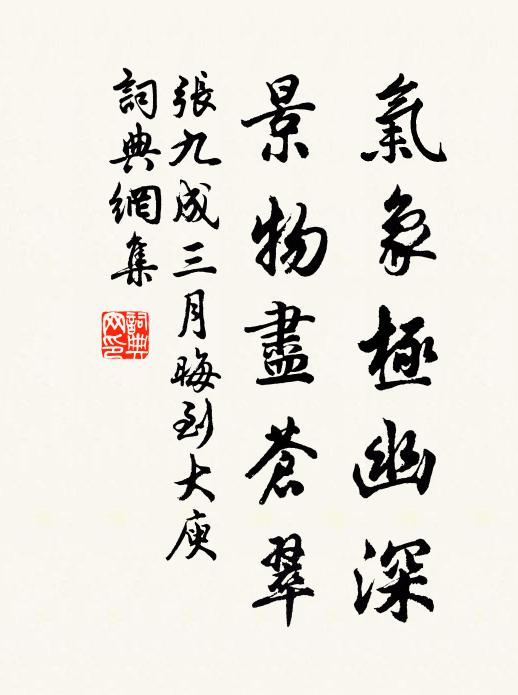 氣象極幽深
景物盡蒼翠
張九成三月晦到大庾
詞典網集
詞典網印